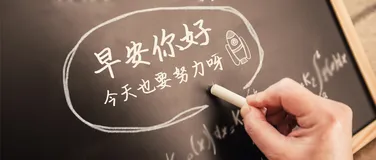 早安你好
今天也要努力呀